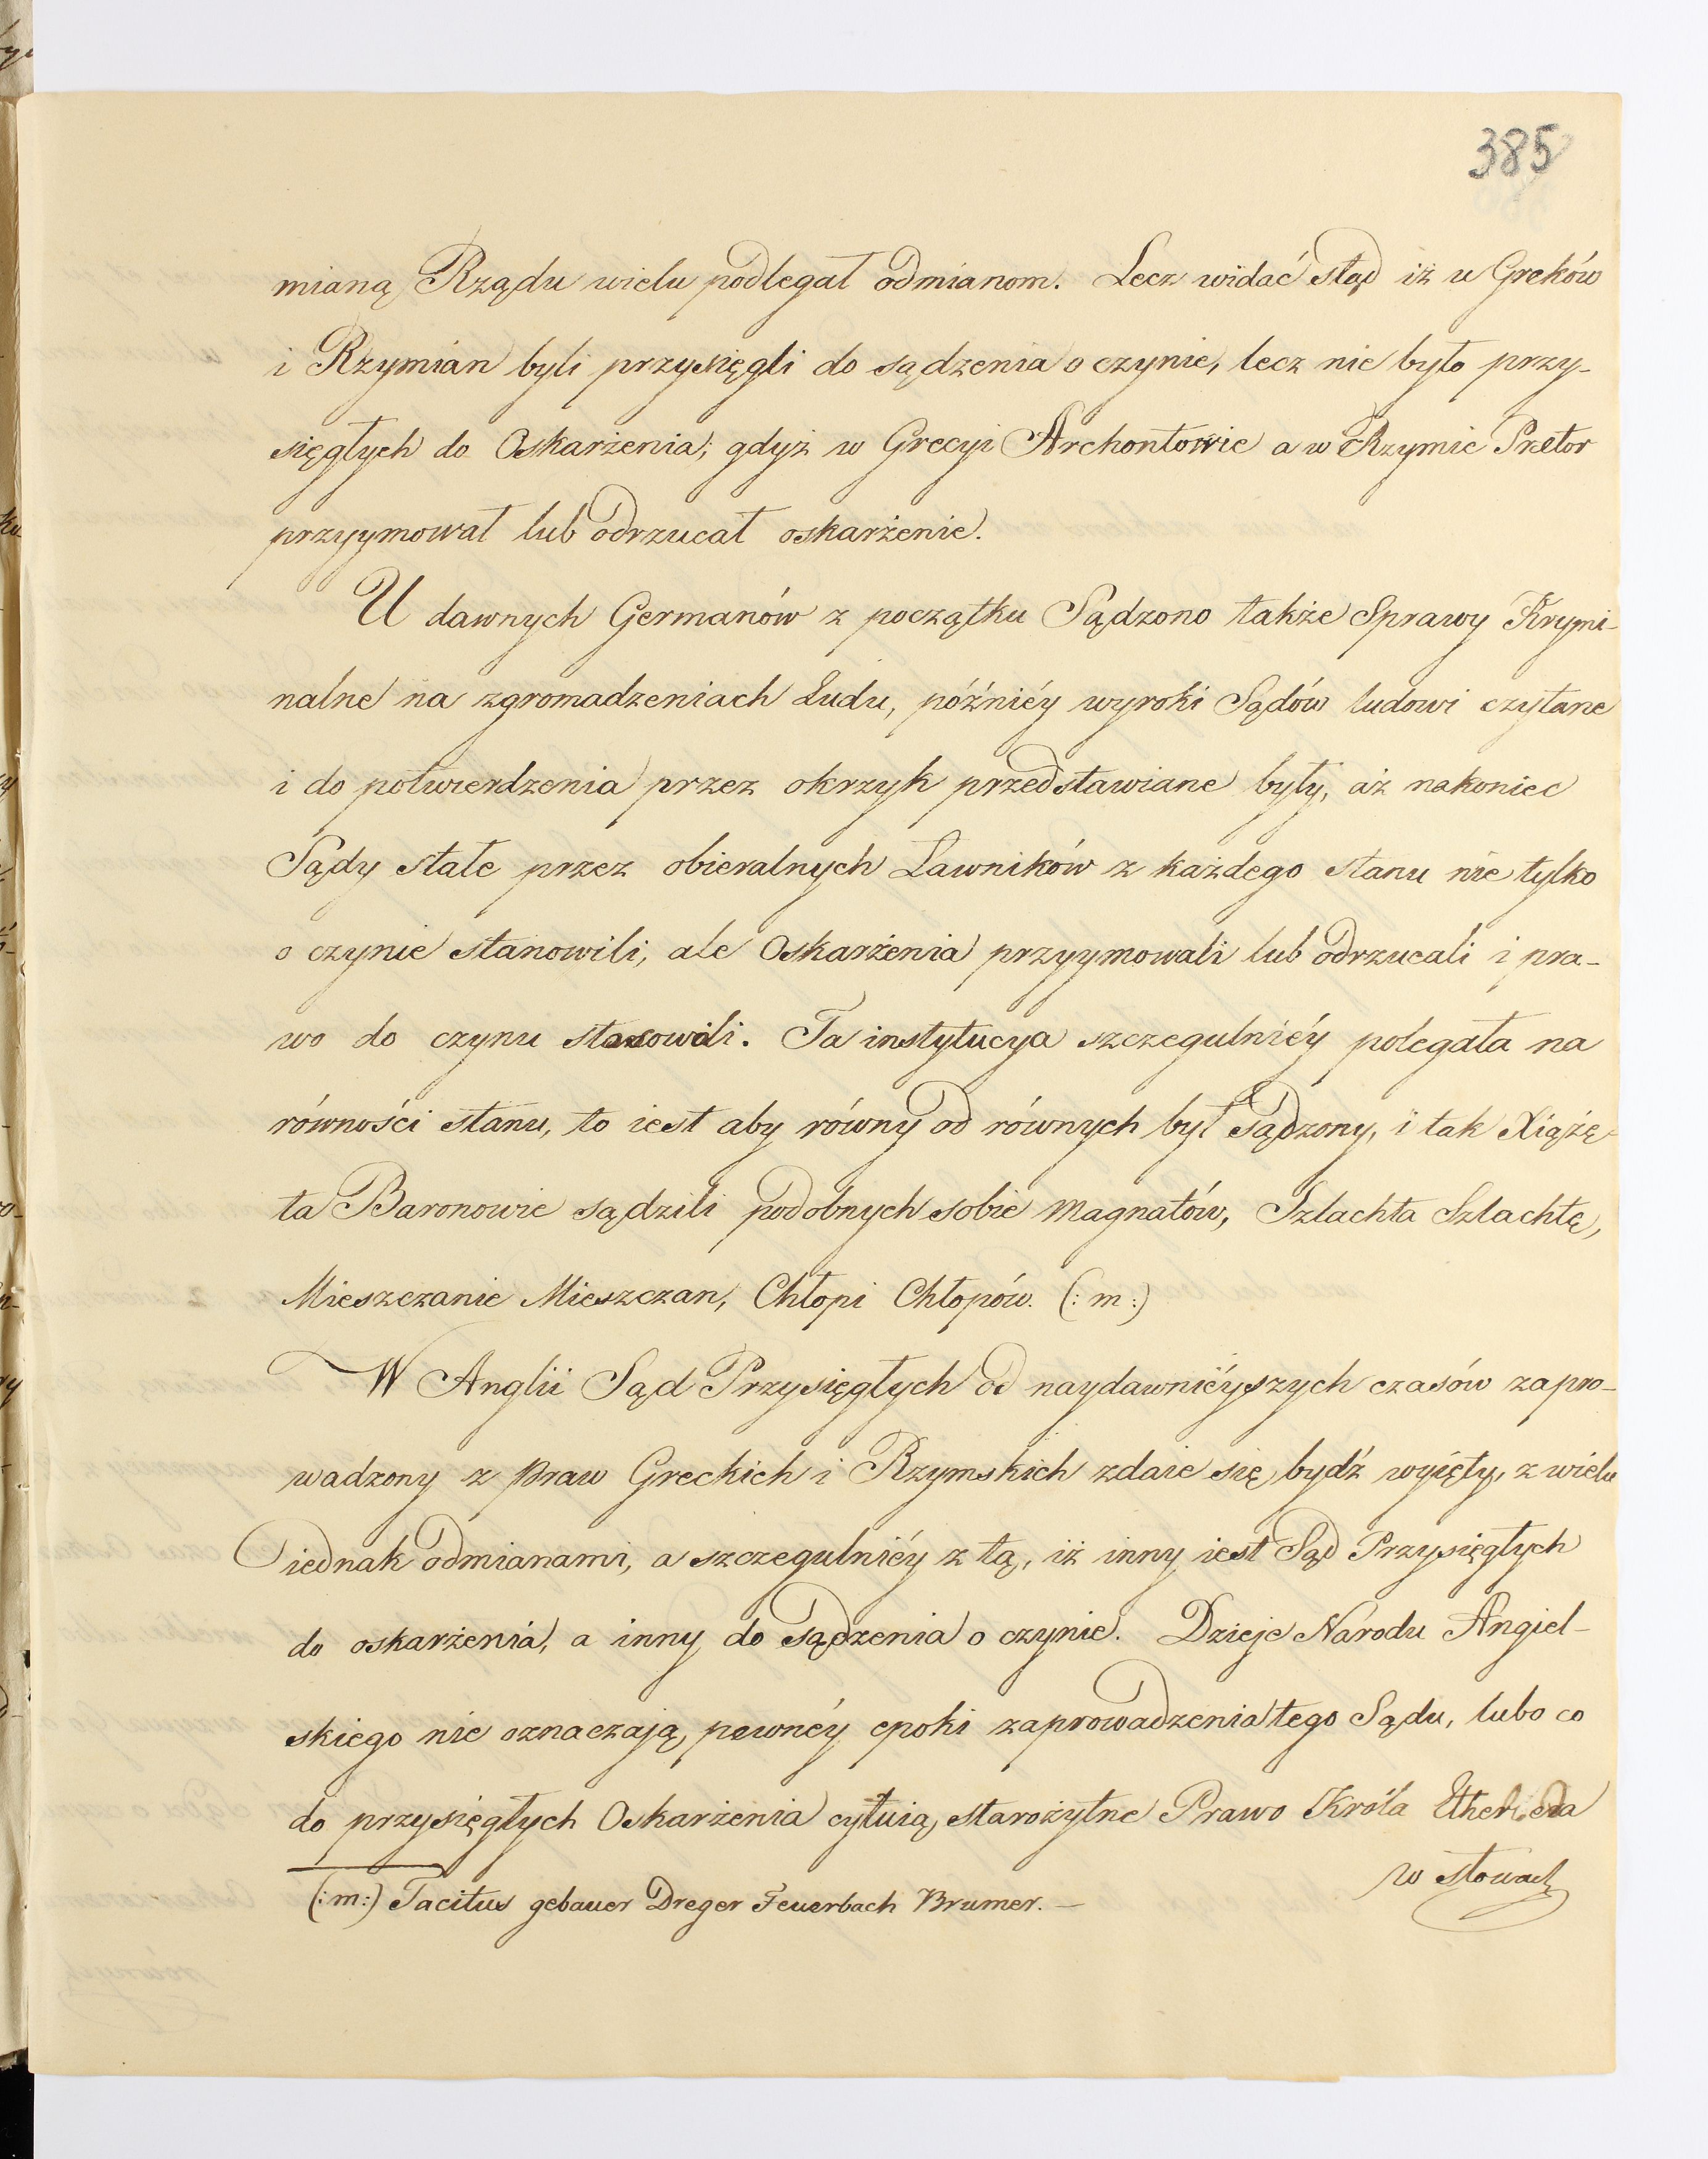 385
mianą Rządu wielu podlegał odmianom. Lecz widać stąd iż u Greków
i Rzymian byli przysięgli do sądzenia o czynie, lecz nie było przy-
sięgłych do Oskarżenia; gdyż w Grecyi Archontowie a w Rzymie Pretor
przyymował lub odrzucał oskarżenie.
U dawnych Germanów z początku Sądzono także Sprawy Krymi-
nalne na zgromadzeniach Ludu, późniéy wyroki Sądów ludowi czytane
i do potwierdzenia przez okrzyk przedstawiane były, aż nakoniec
Sądy stałe przez obieralnych Ławników z każdego stanu nie tylko
o czynie stanowili, ale Oskarżenia przyymowali lub odrzucali i pra-
wo do czynu stosowali. Ta instytucya szczegulniéy polegała na
równości stanu, to iest aby równy od równych był Sądzony, i tak Xiążę-
ta Baronowie sądzili podobnych sobie Magnatów, Szlachta Szlachtę,
Mieszczanie Mieszczan, Chłopi Chłopów. (: m :)
W Anglii Sąd Przysięgłych od naydawniéyszych czasów zapro-
wadzony z Praw Greckich i Rzymskich zdaie się bydź wyięty, z wielu
iednak odmianami, a szczegulniéy z tą, iż inny iest Sąd Przysięgłych
do oskarżenia, a inny do Sądzenia o czynie. Dzieje Narodu Angiel-
skiego nie oznaczają pewnéy epoki zaprowadzenia tego Sądu, lubo co
do przysięgłych Oskarżenia cytuią starożytne Prawo Króla
w słowach
(: m :) Tacitus gebauer Dreger Feuerbach Brumer. —